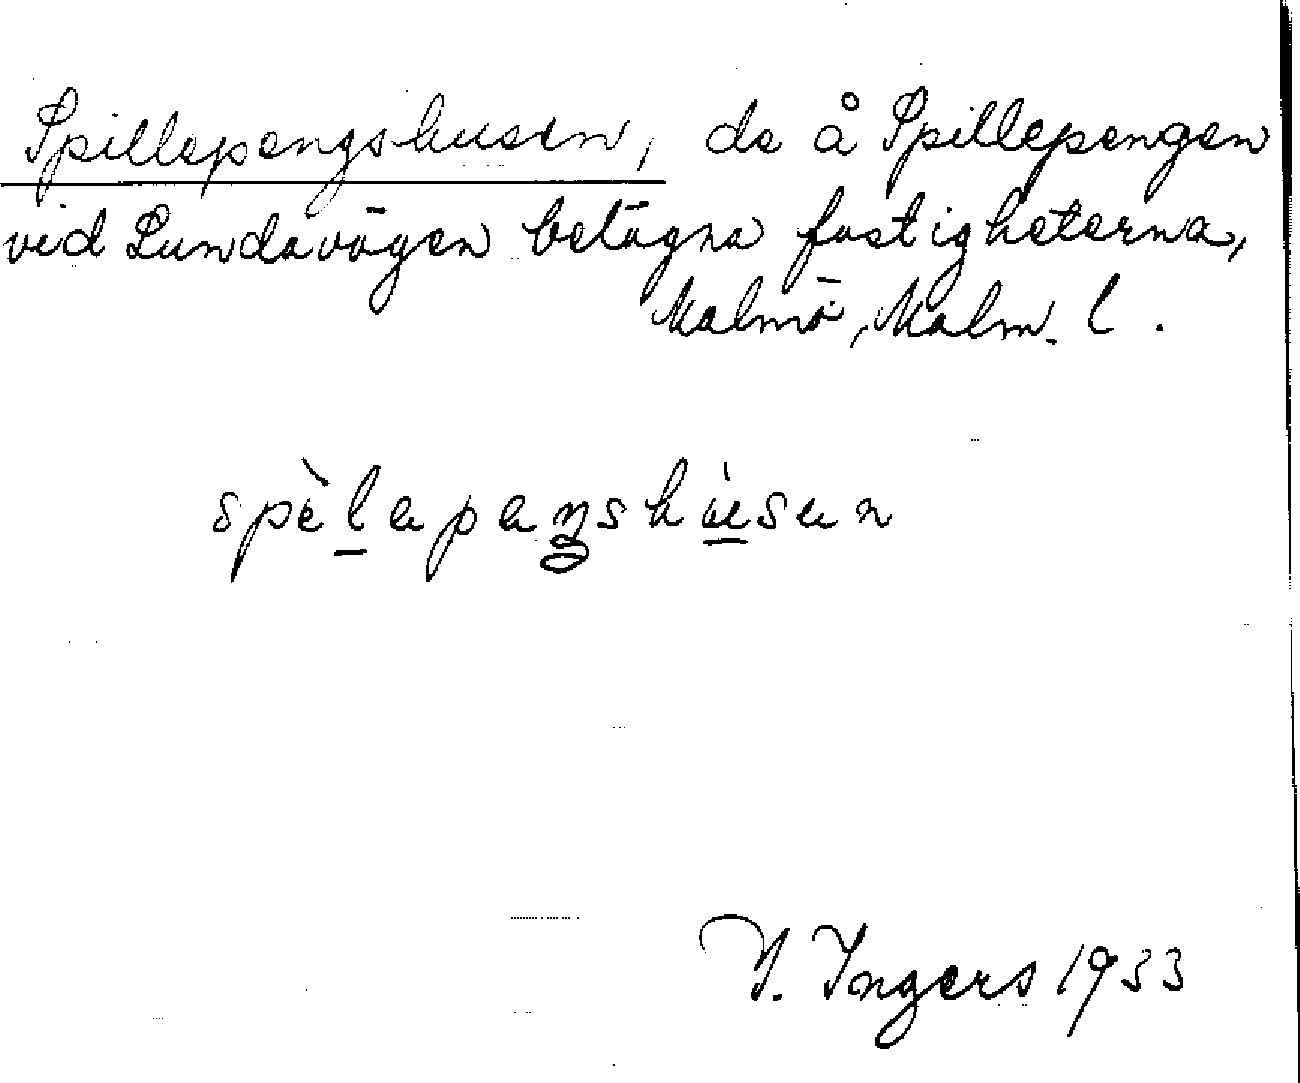 Spillepengshusen, de å Spillepengen
vid Lundavägen belägna fastigheterna,
Malmö, Malm. l.
spèlapaŋshúsan
I. Ingers 1933